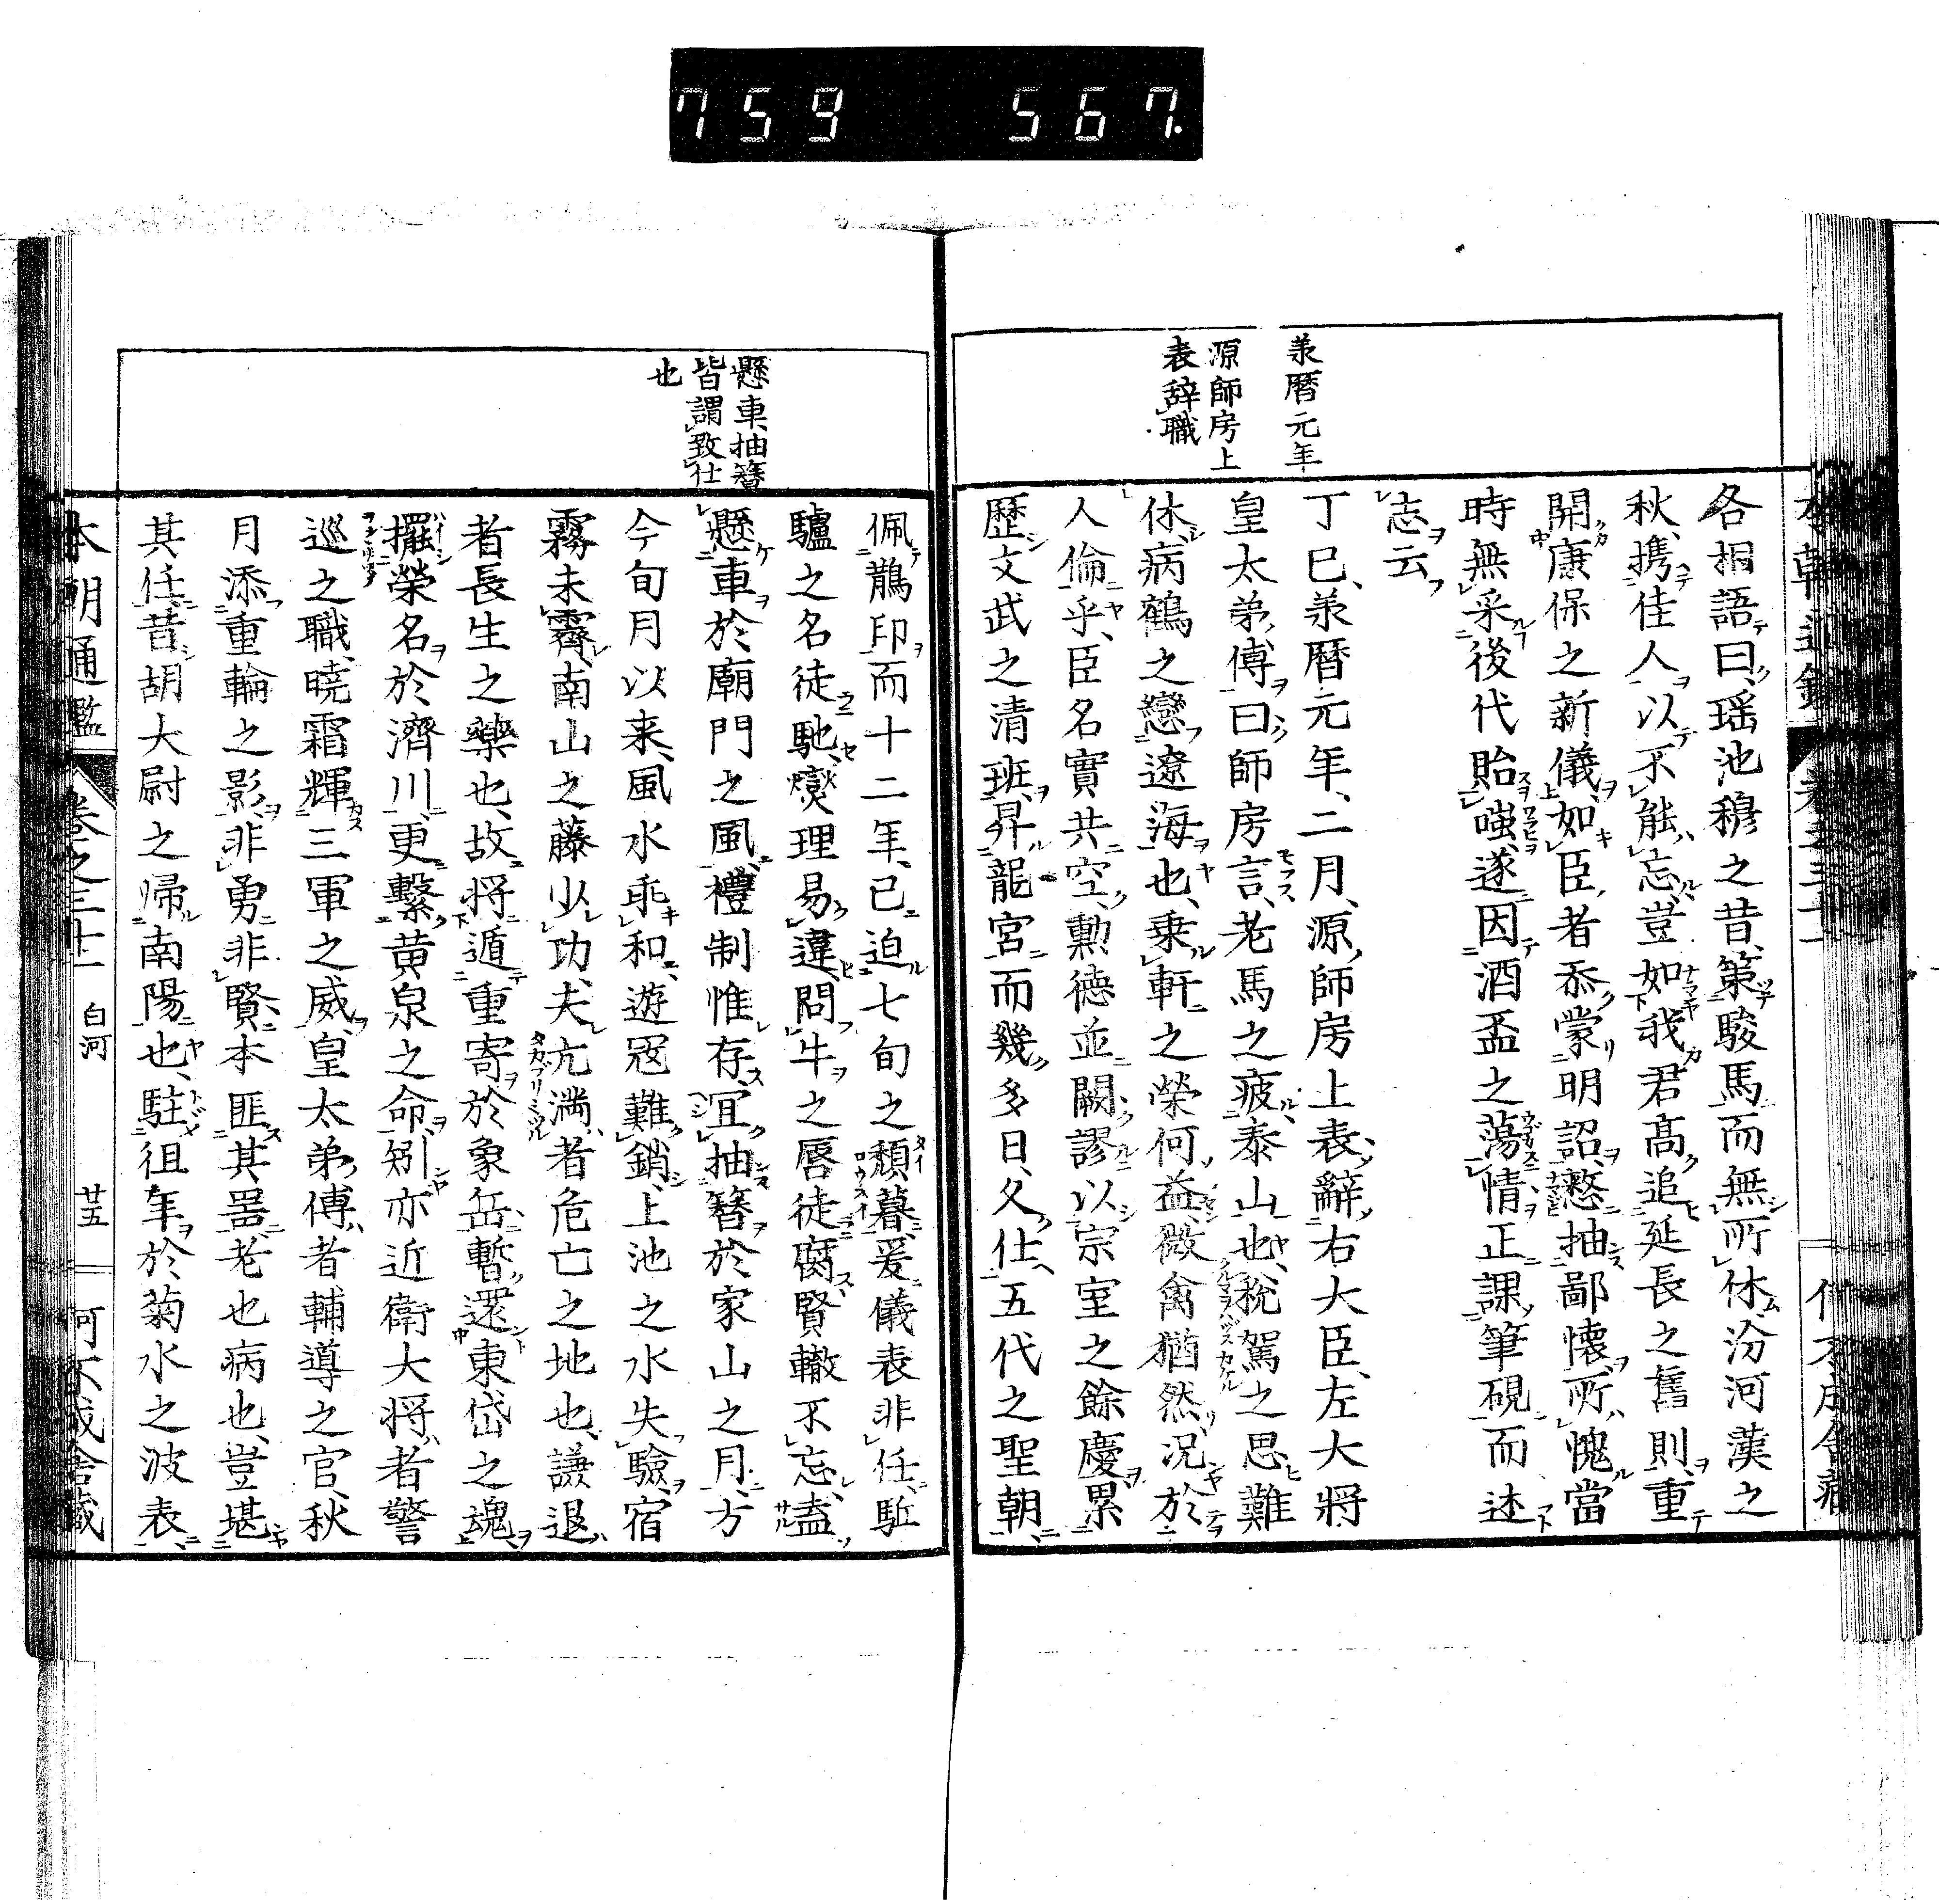 759 567.
承暦元年
源師房上
表辞職
各相語曰、瑶池穆之昔、策駿馬而無所休、汾河漢之
秋、携佳人以不能忘、豈如我君髙追延長之舊則、重
開康保之新儀、如臣者忝蒙明詔、憖抽鄙懐、所愧當
時無采後代貽嗤、遂因酒盃之蕩情、正課筆硯而述
志云
丁巳、承暦元年、二月、源師房上表、辭右大臣、左大将
皇太弟傅曰、師房言、老馬之疲泰山也、税駕之思難
休、病鶴之戀遼海也、乗軒之榮何益、微禽猶然、况於
人倫乎、臣名實共空、勲德並闕、謬以宗室之餘慶、累
歷文武之清班、昇龍宮而幾多日、久仕五代之聖朝、
懸車、抽簪
皆謂致仕
也
佩鵲印而十二年、已迫七旬之頽暮、爰儀表非任、駈
驢之名徒馳、燮理易違、問牛之唇徒腐、賢轍不忘、盍
懸車於廟門之風、禮制惟存、宜抽簪於家山之月、方
今旬月以来、風水乖和、遊冠難銷、上池之水失驗、宿
霧未霽、南山之藤少功、夫亢満者危亡之地也、謙退
者長生之藥也、故将遁重寄於象岳、暫還東岱之魂、
擢榮名於濟川、更繫黄泉之命、矧亦近衛大将者警
巡之職、曉霜輝三軍之威、皇太弟傅者輔導之官、秋
月添重輪之影、非勇非賢、本匪其噐、老也病也、豈堪
其任、昔胡大尉之歸南陽也、駐徂年於菊水之波、表
本朝通鑑 卷之三十一 白河 廿五